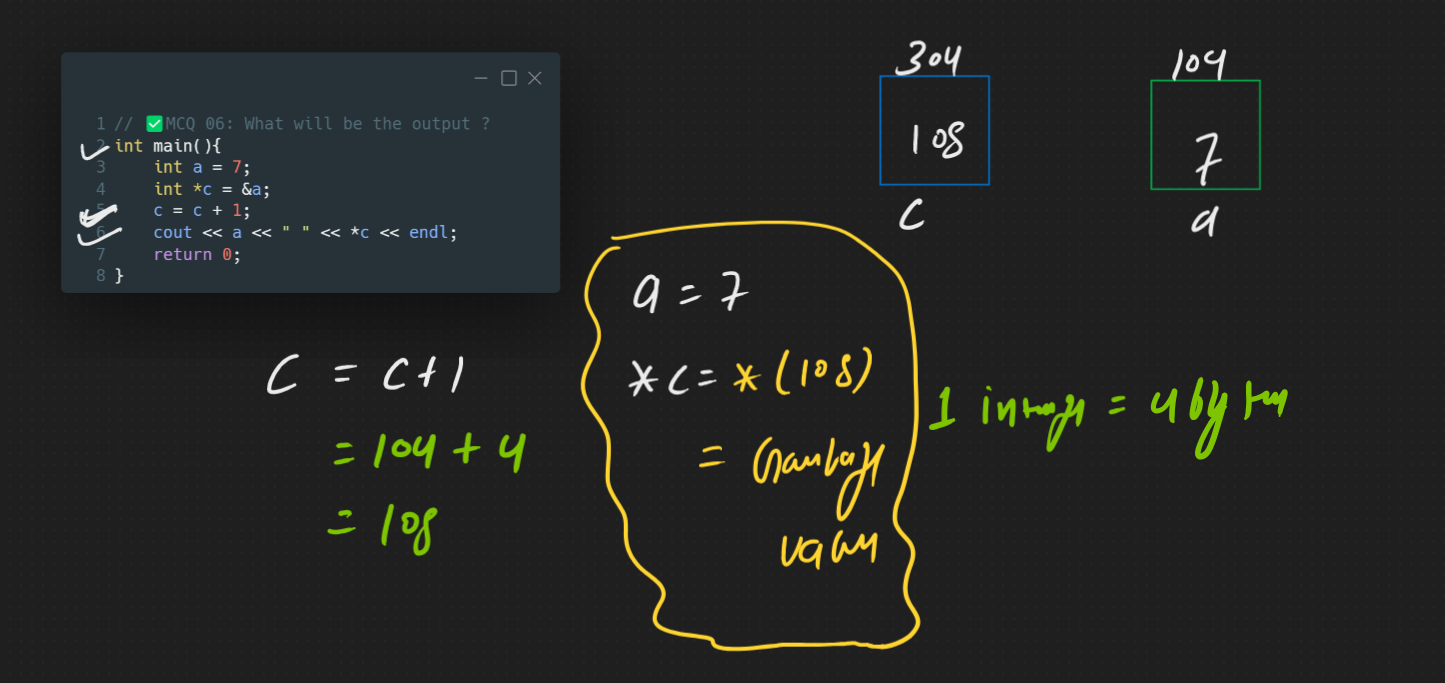 1 // ✅MCQ 06: What will be the output ?
2 int main(){
3 int a = 7;
4 int *c = &a;
5 c = c + 1;
6 cout << a << " " << *c << endl;
7 return 0;
8 }
304
108
c
104
7
a
C = C+1
= 104 + 4
= 108
a = 7
*c = *(108)
= Garbage
value
1 integer = 4 bytes